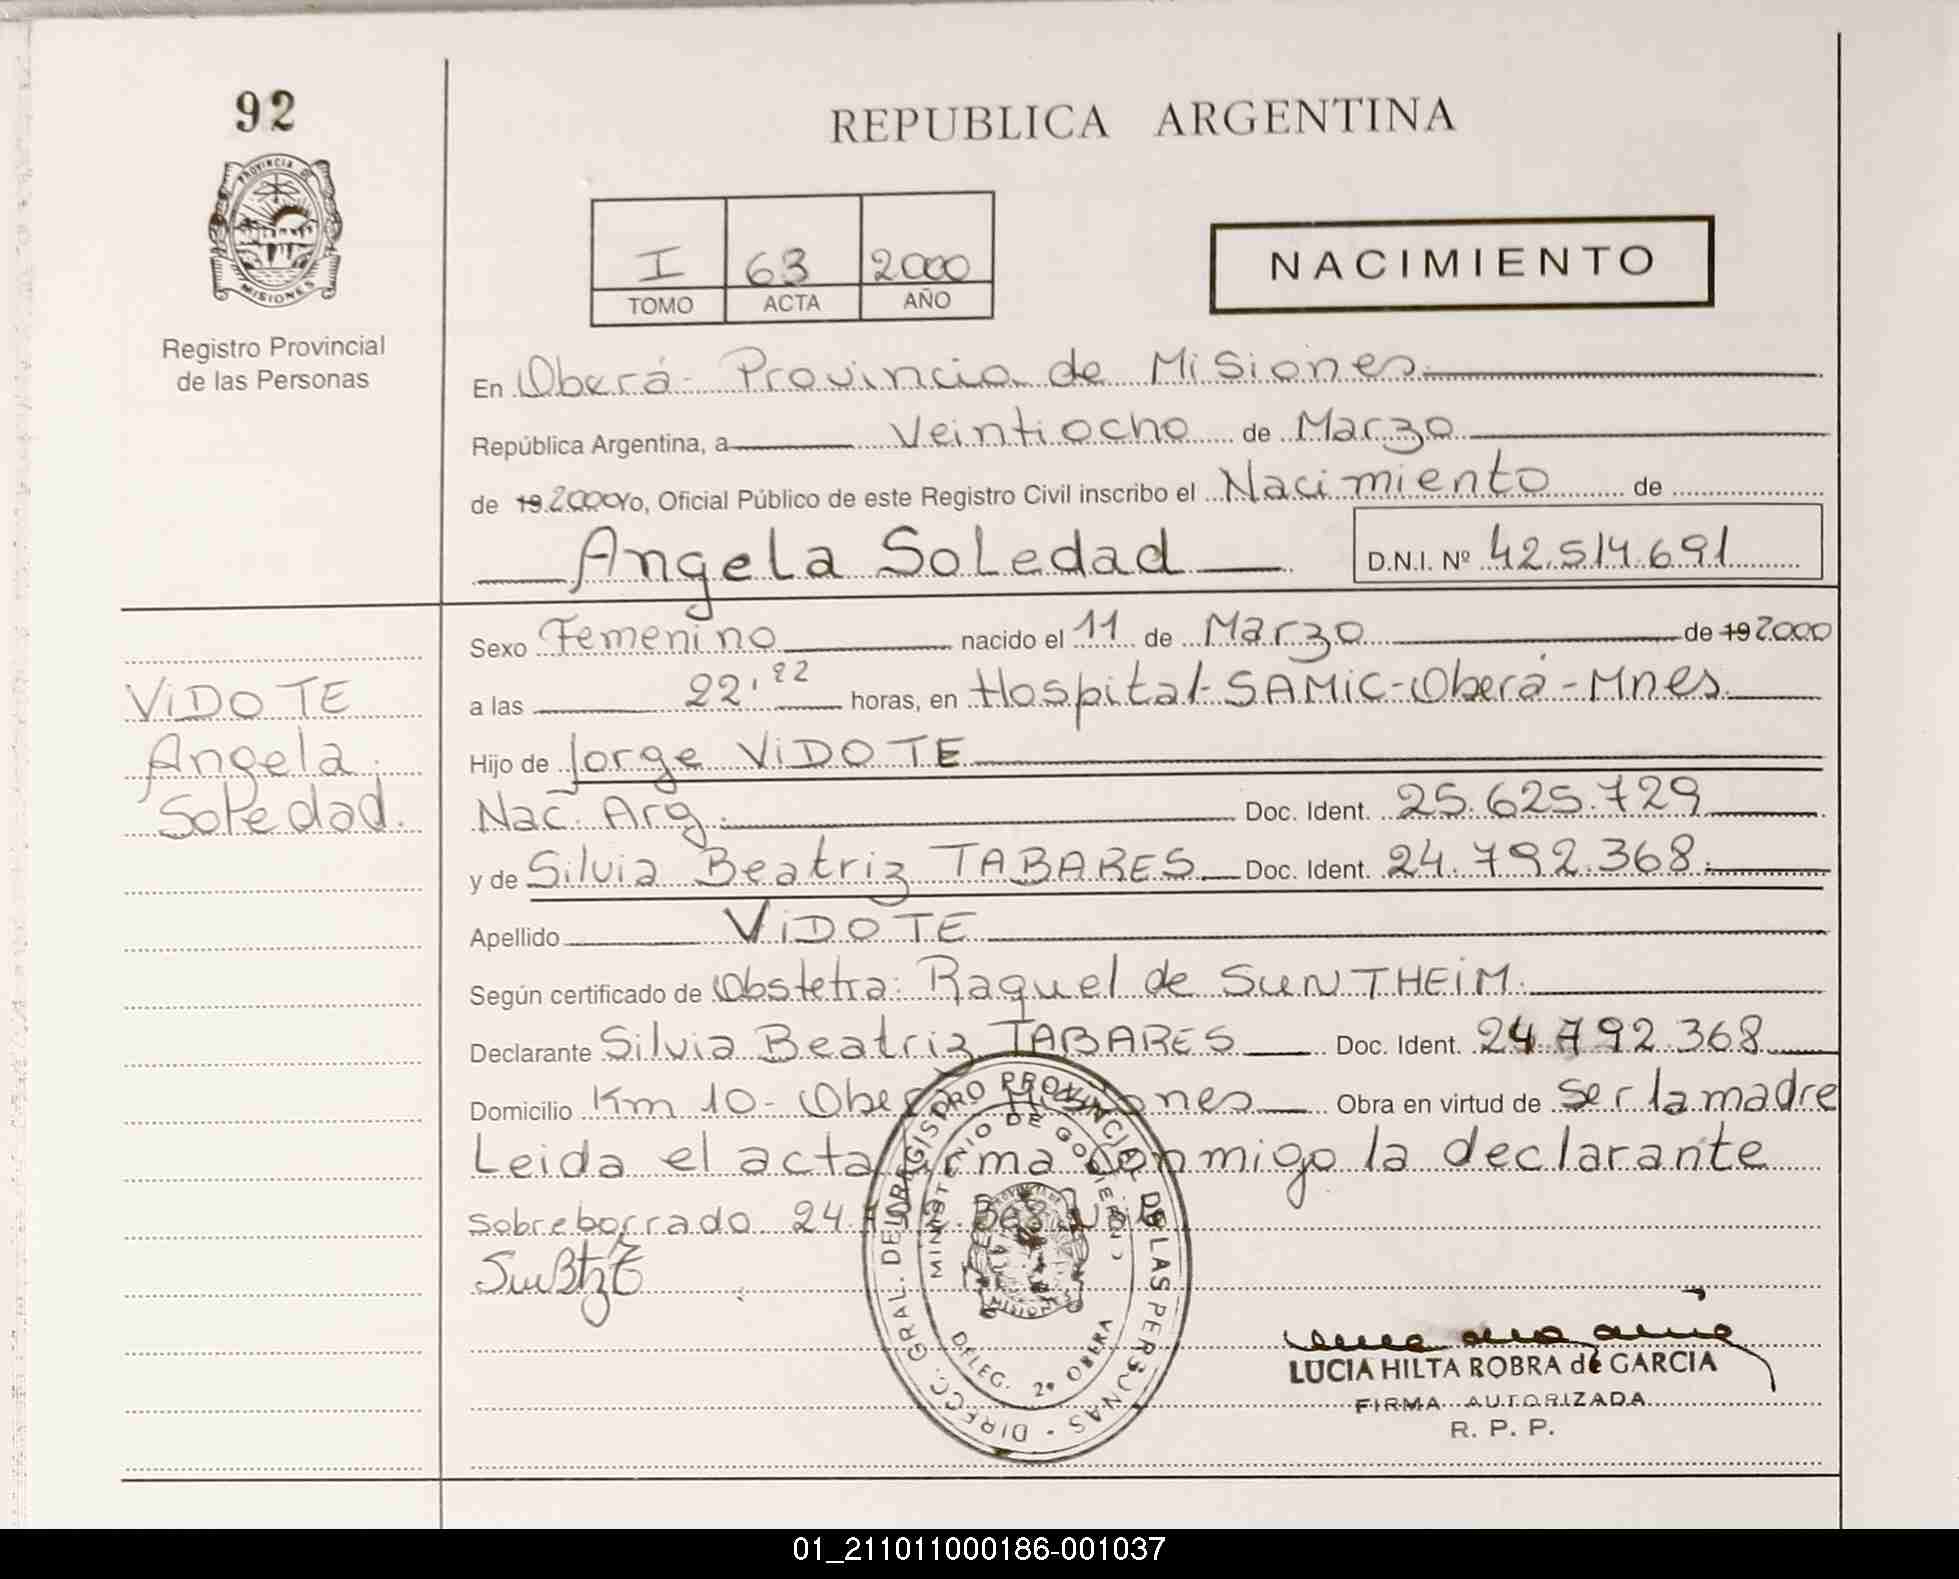 92
PROVINCIA DE
MISIONES
Registro Provincial
de las Personas
REPUBLICA ARGENTINA
I 63 2000
TOMO ACTA AÑO
NACIMIENTO
En Oberá - Provincia de Misiones
República Argentina, a Veintiocho de Marzo
de 19 2000 Yo, Oficial Público de este Registro Civil inscribo el Nacimiento de
Angela Soledad D.N.I. Nº 42.514.691
Sexo Femenino nacido el 11 de Marzo de 19 2000
a las 22,22 horas, en Hospital-SAMIC-Oberá-Mnes
Hijo de Jorge ViDOTE
Nac. Arg. Doc. Ident. 25.625.729
y de Silvia Beatriz TABARES Doc. Ident. 24.792.368.
Apellido ViDOTE
Según certificado de Obstetra: Raquel de SUNTHEiM.
Declarante Silvia Beatriz TABARES Doc. Ident. 24.792.368
Domicilio Km 10 - Oberá Misiones Obra en virtud de ser la madre
Leida el acta firma conmigo la declarante
Sobreborrado 24.792.368
ViDOTE
Angela
Soledad.
DIRECC. GRAL. DEL REGISTRO PROVINCIAL DE LAS PERSONAS
MINISTERIO DE GOBIERNO
MISIONES
DELEG. 2º OBERA
LUCIA HILTA ROBRA de GARCIA
FIRMA AUTORIZADA
R. P. P.
01_211011000186-001037